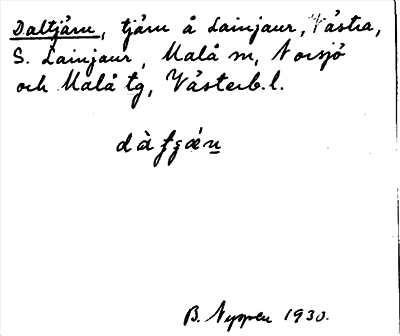 Daltjärn, tjärn å Lainjaur, Västra,
S. Lainjaur, Malå sn, Norsjö
och Malå tg, Västerb.l.
B. Nyppen 1930.